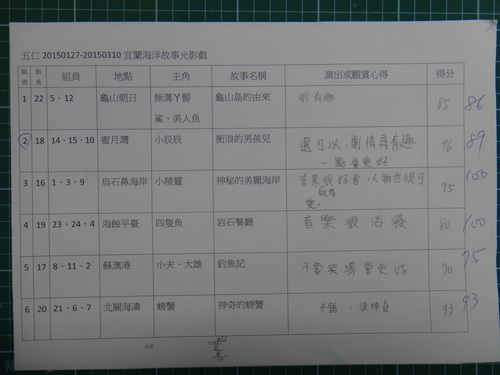 五仁 20150127-20150310 宜蘭海洋故事光影戲
組別 組長 組員 地點 主角 故事名稱 演出或觀賞心得 得分
1 22 5、12 龜山朝日 無溝丫髻鯊、美人魚 龜山島的由來 很有趣 85 86
2 18 14、15、10 蜜月灣 小辰辰 衝浪的男孩兒 還可以,劇情再有趣
一點會更好 76 89
3 16 1、3、9 烏石鼻海岸 小精靈 神秘的美麗海岸 音樂很好聽、人物也很可
愛。 95 100
4 19 23、24、4 海蝕平臺 四隻魚 岩石餐廳 音樂很活潑 80 100
5 17 8、11、2 蘇澳港 小夫、大雄 釣魚記 不會笑場會更好 70 75
6 20 21、6、7 北關海濤 螃蟹 神奇的螃蟹 不錯、很神奇 93 93